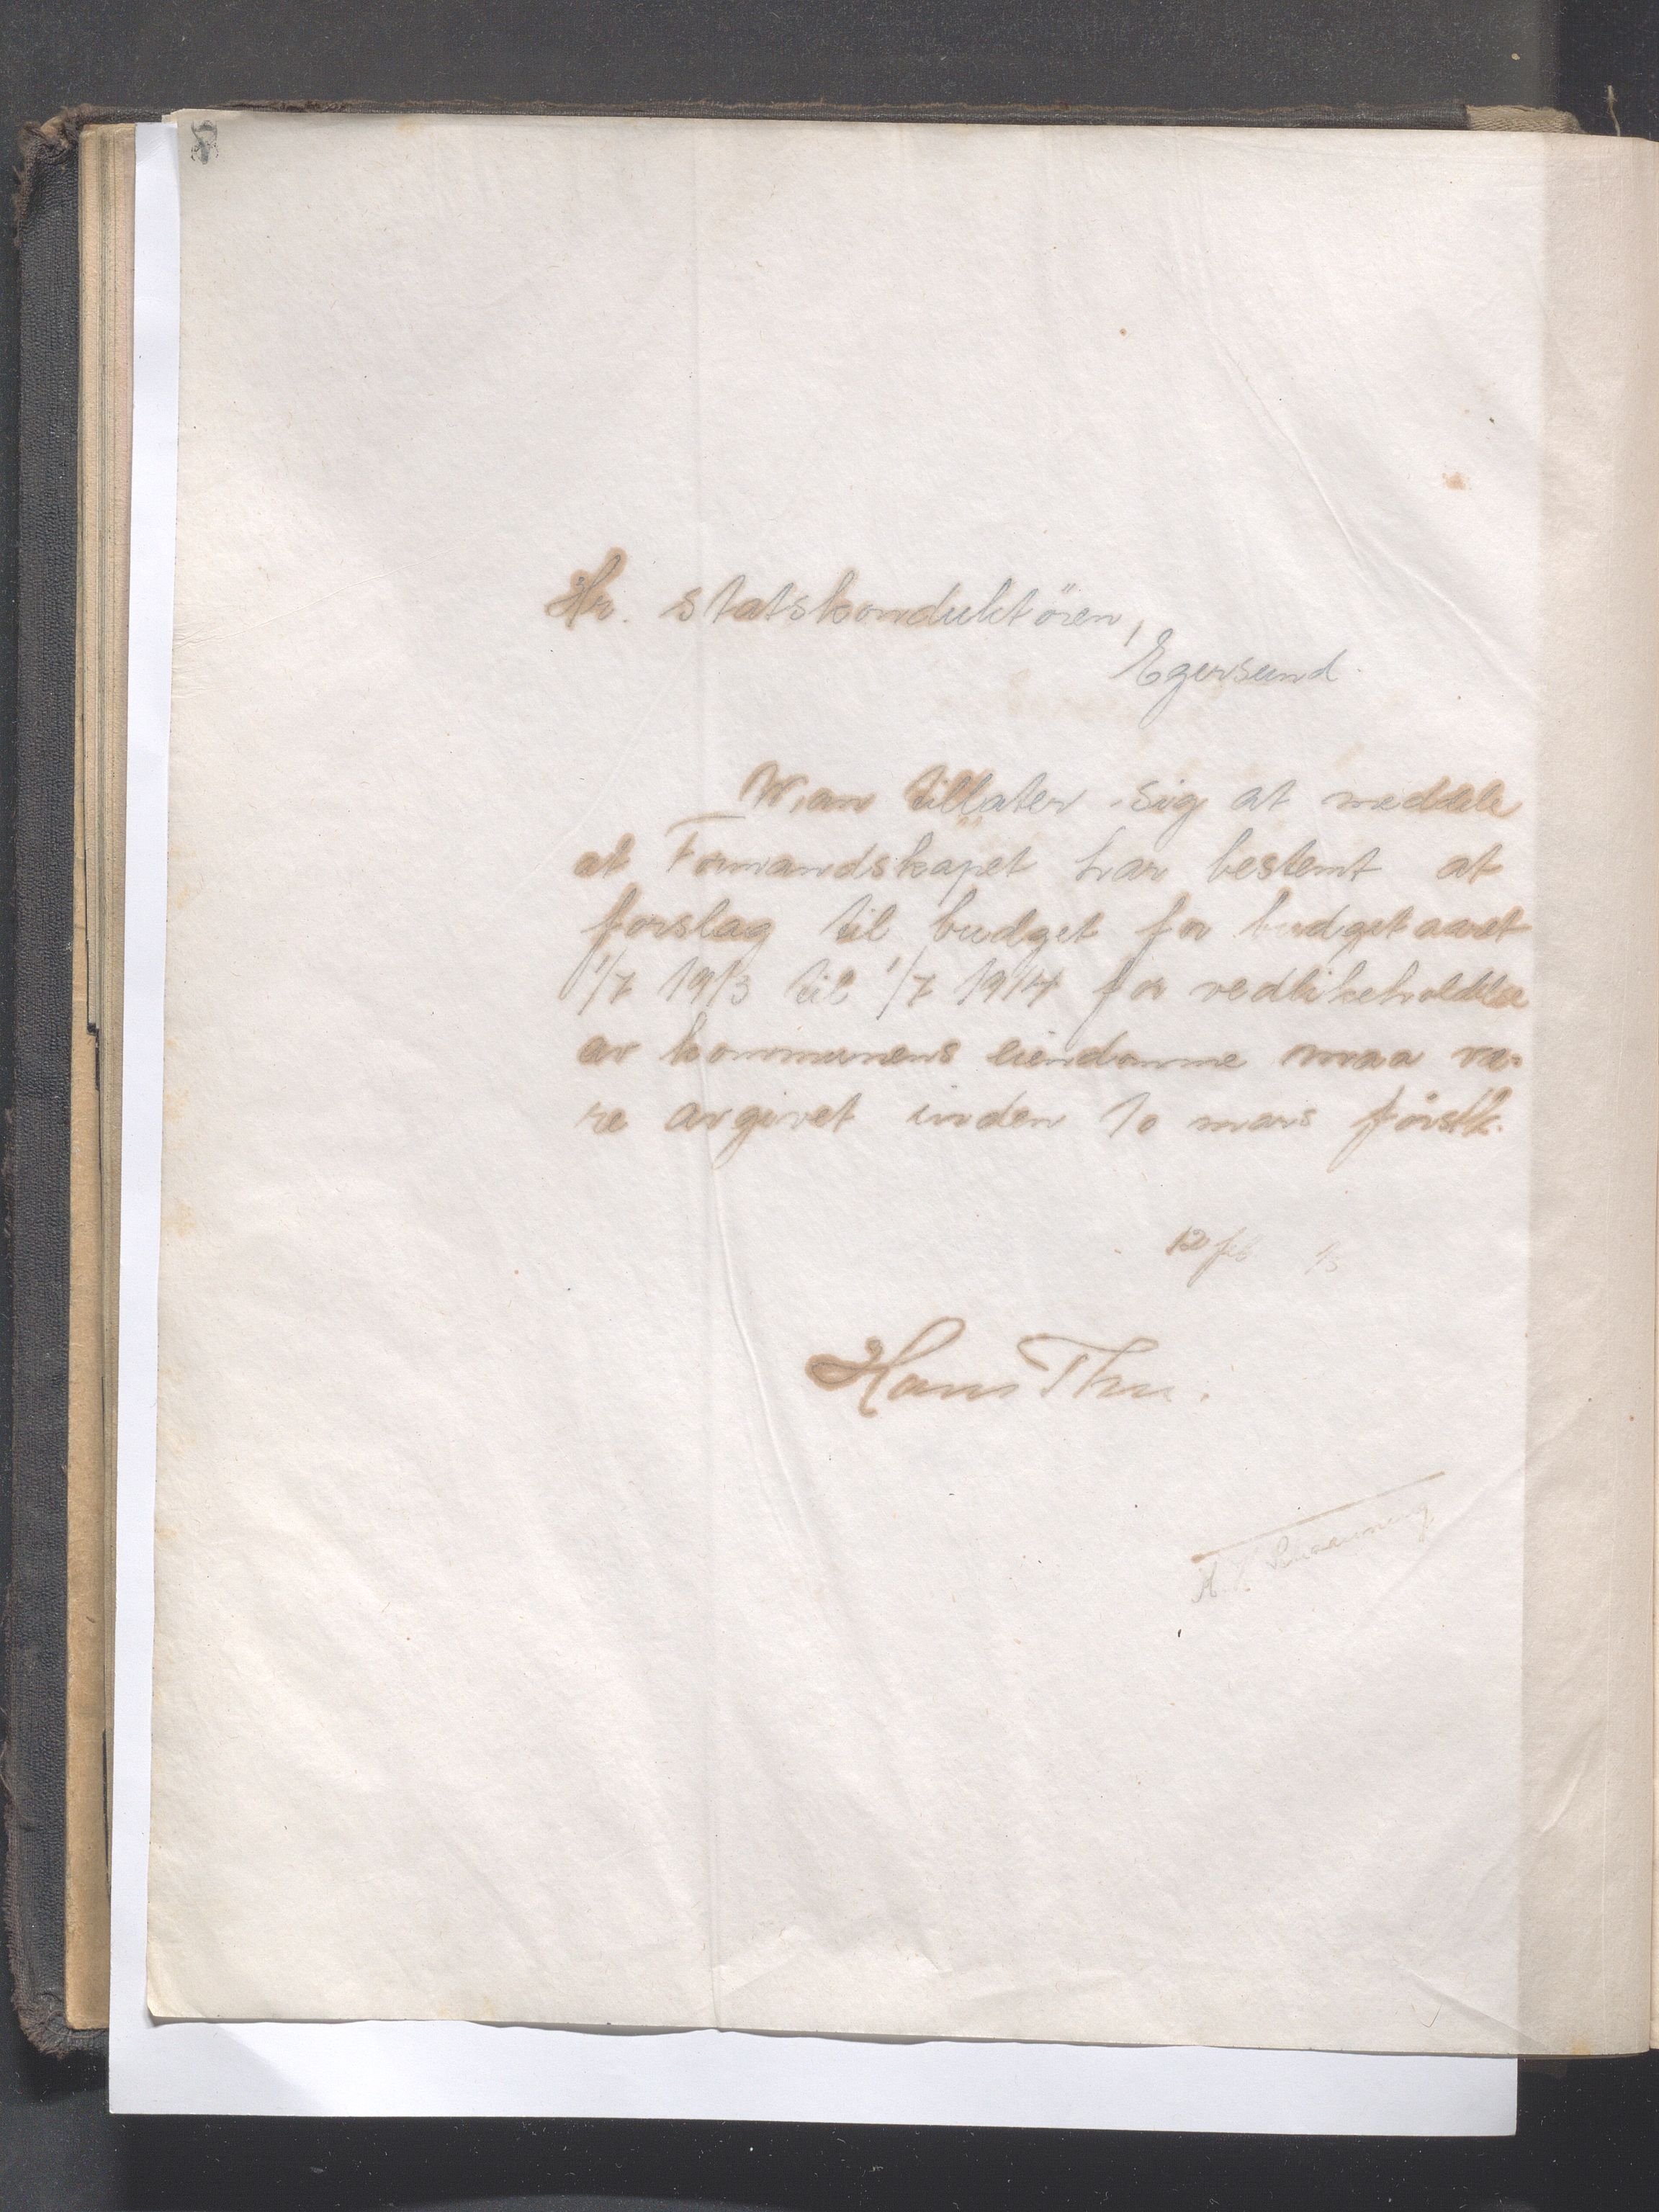 8
Hr. statskonduktören,
Egersund.
Man tillater sig at meddele
at Formandskapet har bestemt at
forslag til budget for budgetaaret
1/7 1913 til 1/7 1914 for vedlikeholdelse
av kommunens eiendomme maa væ-
re avgivet inden 10 mars førstk.
12 feb 13
Hans Thu.